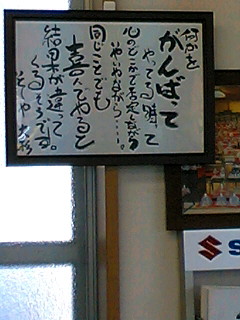 何かを
がんばって
やってる時って
心のどこかで否定しながら
やいやいながら……。
同じことでも
喜んでやると
結果が違って
くるそうです。
S